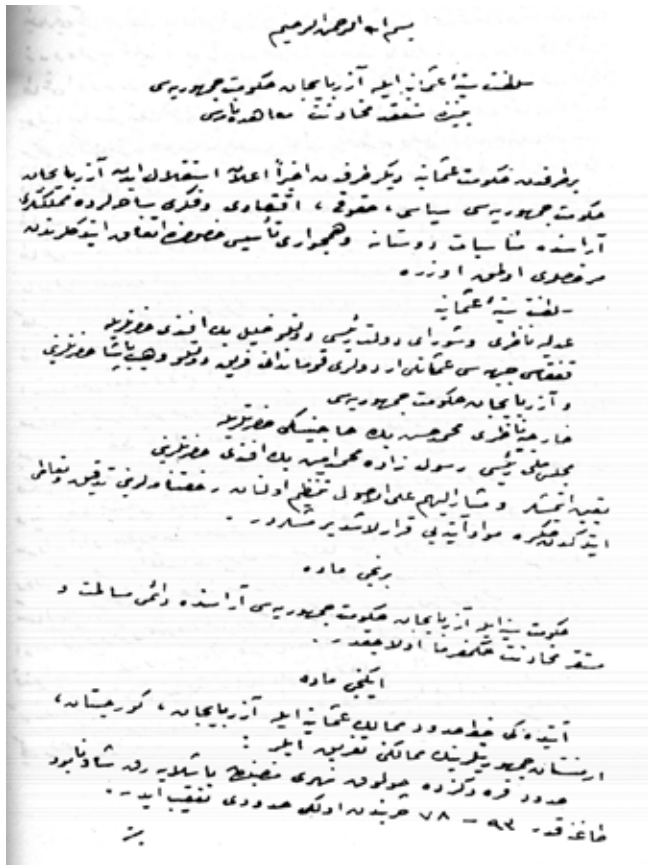 بسم الله الرحمن الرحيم
سلطنت سنيۀ عثمانيه ايله آزربايجان حكومت جمهوريه‌سى
بيننده منعقد مخادنت معاهده‌نامه‌سى
بر طرفدن حكومت عثمانيه ديگر طرفدن اخيراً اعلان استقلال ايدن آزربايجان
حكومت جمهوريه‌سى سياسى، حقوقى، اقتصادى و فكرى ساحه‌لرده مملكتلرى
آراسنده مناسبات دوستانه و همجوارى تأسيسى خصوصنده اتفاق ايتدكلرندن
مرخصلرى اولمق اوزره
سلطنت سنيۀ عثمانيه
عدليه ناظرى و شوراى دولت رئيسى دولتلو خليل بك افندى حضرتلريله
قفقاس جبهه‌سى عثمانلى اردولرى قوماندانى فريق دولتلو وهيب پاشا حضرتلرينى
و آزربايجان حكومت جمهوريه‌سى
خارجيه ناظرى محمد حسن بك حاجينسكى حضرتلريله
مجلس ملى رئيسى رسول زاده محمد امين بك افندى حضرتلرينى
تعيين ايتمشلر و مشار اليهم على الاصول تنظيم اولنان رخصتنامه‌لرينى تدقيق و تعاطى
ايتدكدن صكره مواد آتيه‌يى قرارلاشديرمشلردر.
برنجى ماده
حكومت سنيه ايله آزربايجان حكومت جمهوريه‌سى آراسنده دائمى مسالمت و
مستقر مخادنت حكمفرما اولاجقدر.
ايكنجى ماده
آتيده‌كى خط حدود ممالك عثمانيه ايله آزربايجان، گورجستان،
ارمنستان جمهوريتلرينك ممالكنى تفريق ايلر:
حدود قره دكزده چولوق نهرى منصبندن باشلايه‌رق شاونابود
طاغنه قدر ٩٣ – ٧٨ حربندن اولكى حدودى تعقيب ايدر.